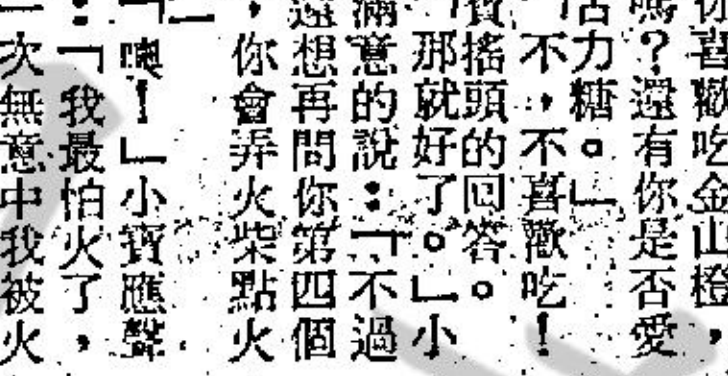 你喜歡吃金山橙，
嗎？還有你是否愛
古力糖。」
「不，不喜歡吃！
寶搖頭的回答。
「那就好了。」小
滿意的說：「不過
還想再問你第四個
，你會弄火柴點火
」
「噢！」小寶應聲
：「我最怕火了，
一次無意中我被火